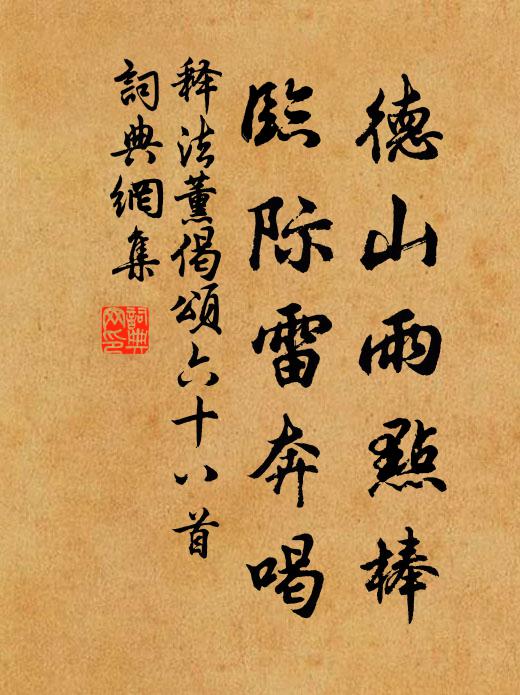 德山雨點棒
臨际雷奔喝
释法薰偈頌六十八首
詞典網集
詞典
网印